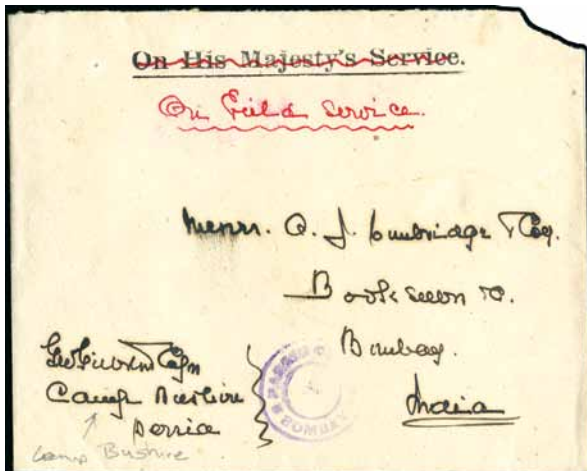 On His Majesty's Service.
On Field Service.
Messrs. A. J. Combridge & Coy.
Booksellers &c.
Bombay.
India
Camp Bushire
Persia
Camp Bushire
PASSED
BOMBAY